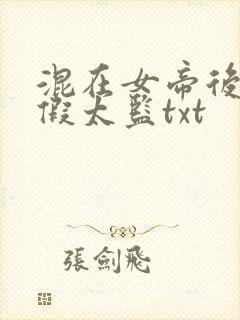 混在女帝後
假太監txt
張劍飛